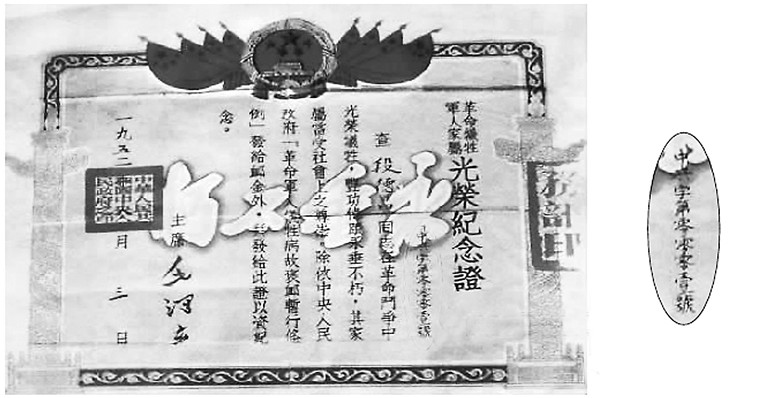 革命犧牲
軍人家屬
光榮紀念證
中共字第零零零壹號
查段德昌同志在革命鬥爭中
光榮犧牲,豐功偉績永垂不朽,其家
屬當受社會上之尊崇。除依中央人民
政府「革命軍人犧牲病故褒卹暫行條
例」發給卹金外,並發給此證以資紀
念。
主席 毛澤東
一九五二 月 三 日
中共字第零零零壹號